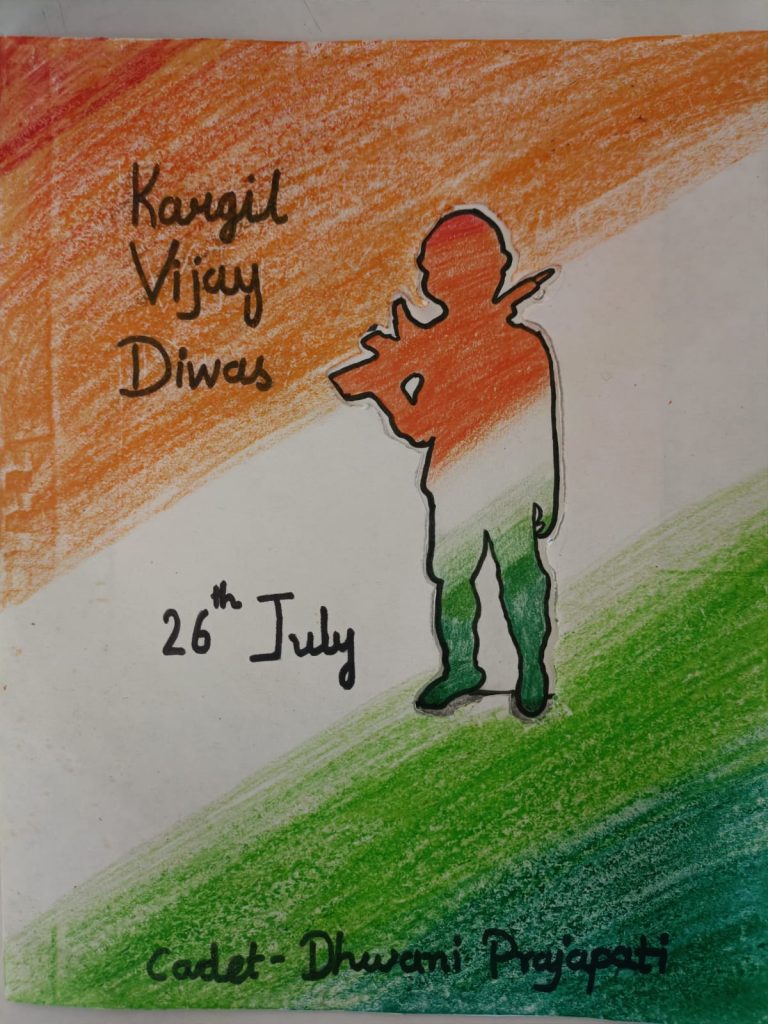 Kargil
Vijay
Diwas
26th July
Cadet - Dhwani Prajapati